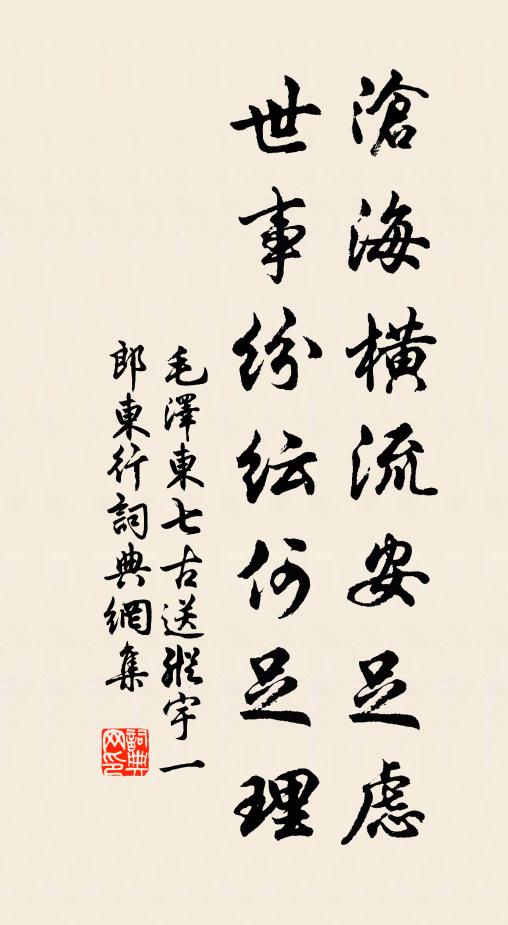 滄海橫流安足慮
世事紛紜何足理
毛澤東七古送縱宇一
郎東行詞典網集
詞典
网印